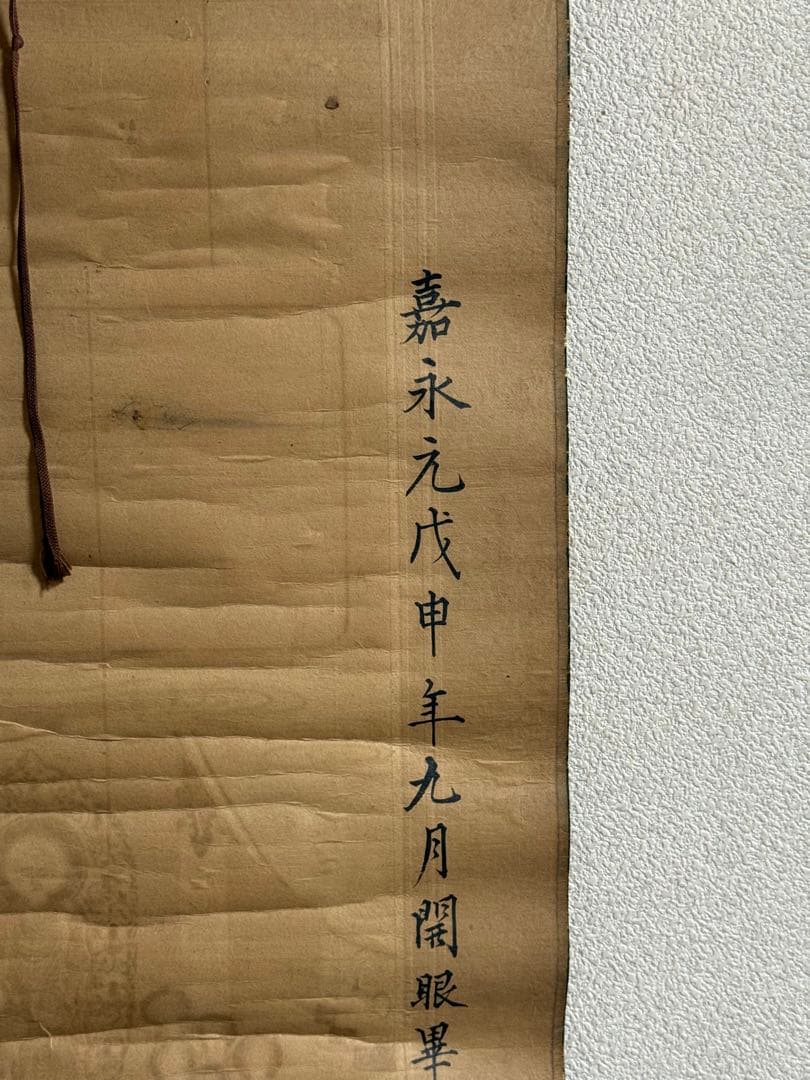 嘉永元戊申年九月開眼畢